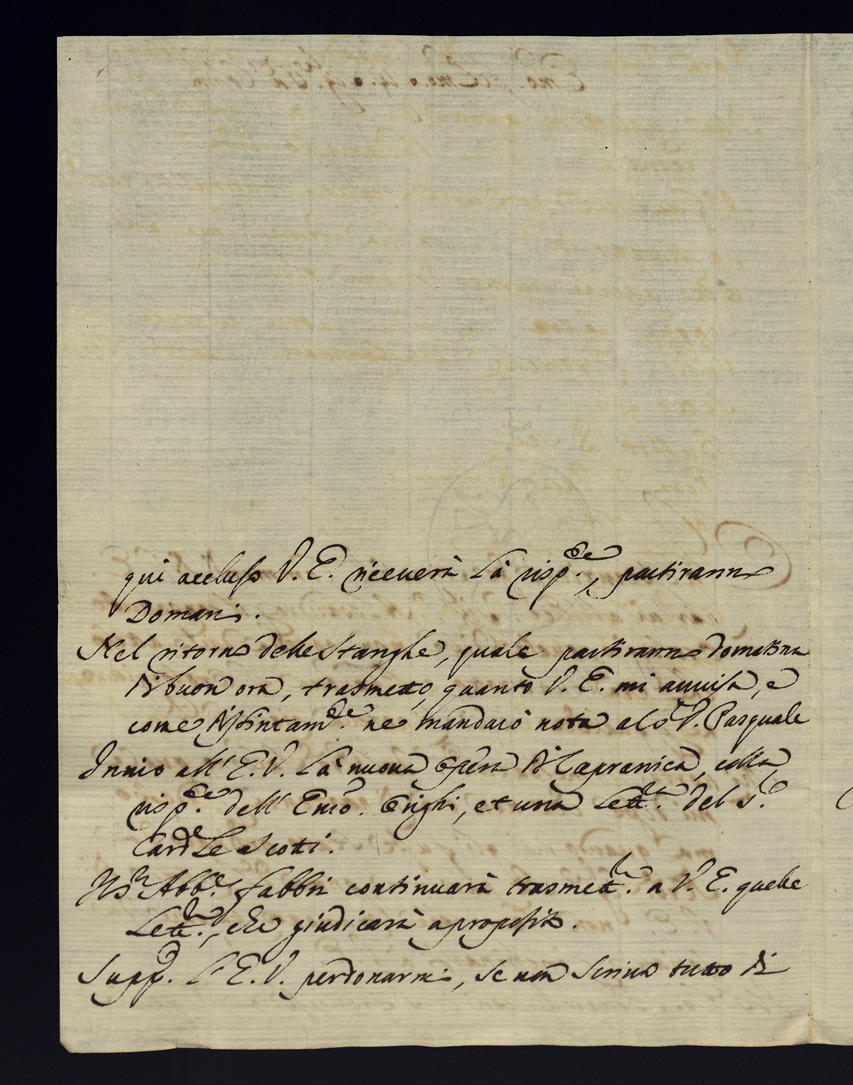 qui accluso V. E. riceverà la risp.te, partiranno
Domani.
Nel ritorno delle stanghe, quale partiranno domatina
di buon ora, trasmetto quanto V. E. mi avvisa, e
come distintam.te ne mandarò nota al S.r D. Pasquale
Invio all' E. V. la nuova opera di Capranica, colla
risp.te dell' Emo. Erighi, et una Lett.a del S.r
Card.le Scotti.
Il S.r Abb.e Fabbri continuarà trasmett.e a V. E. quelle
Lett.e, che giudicarà a proposito.
Supp.o l' E. V. perdonarmi, se non scrivo tutto di